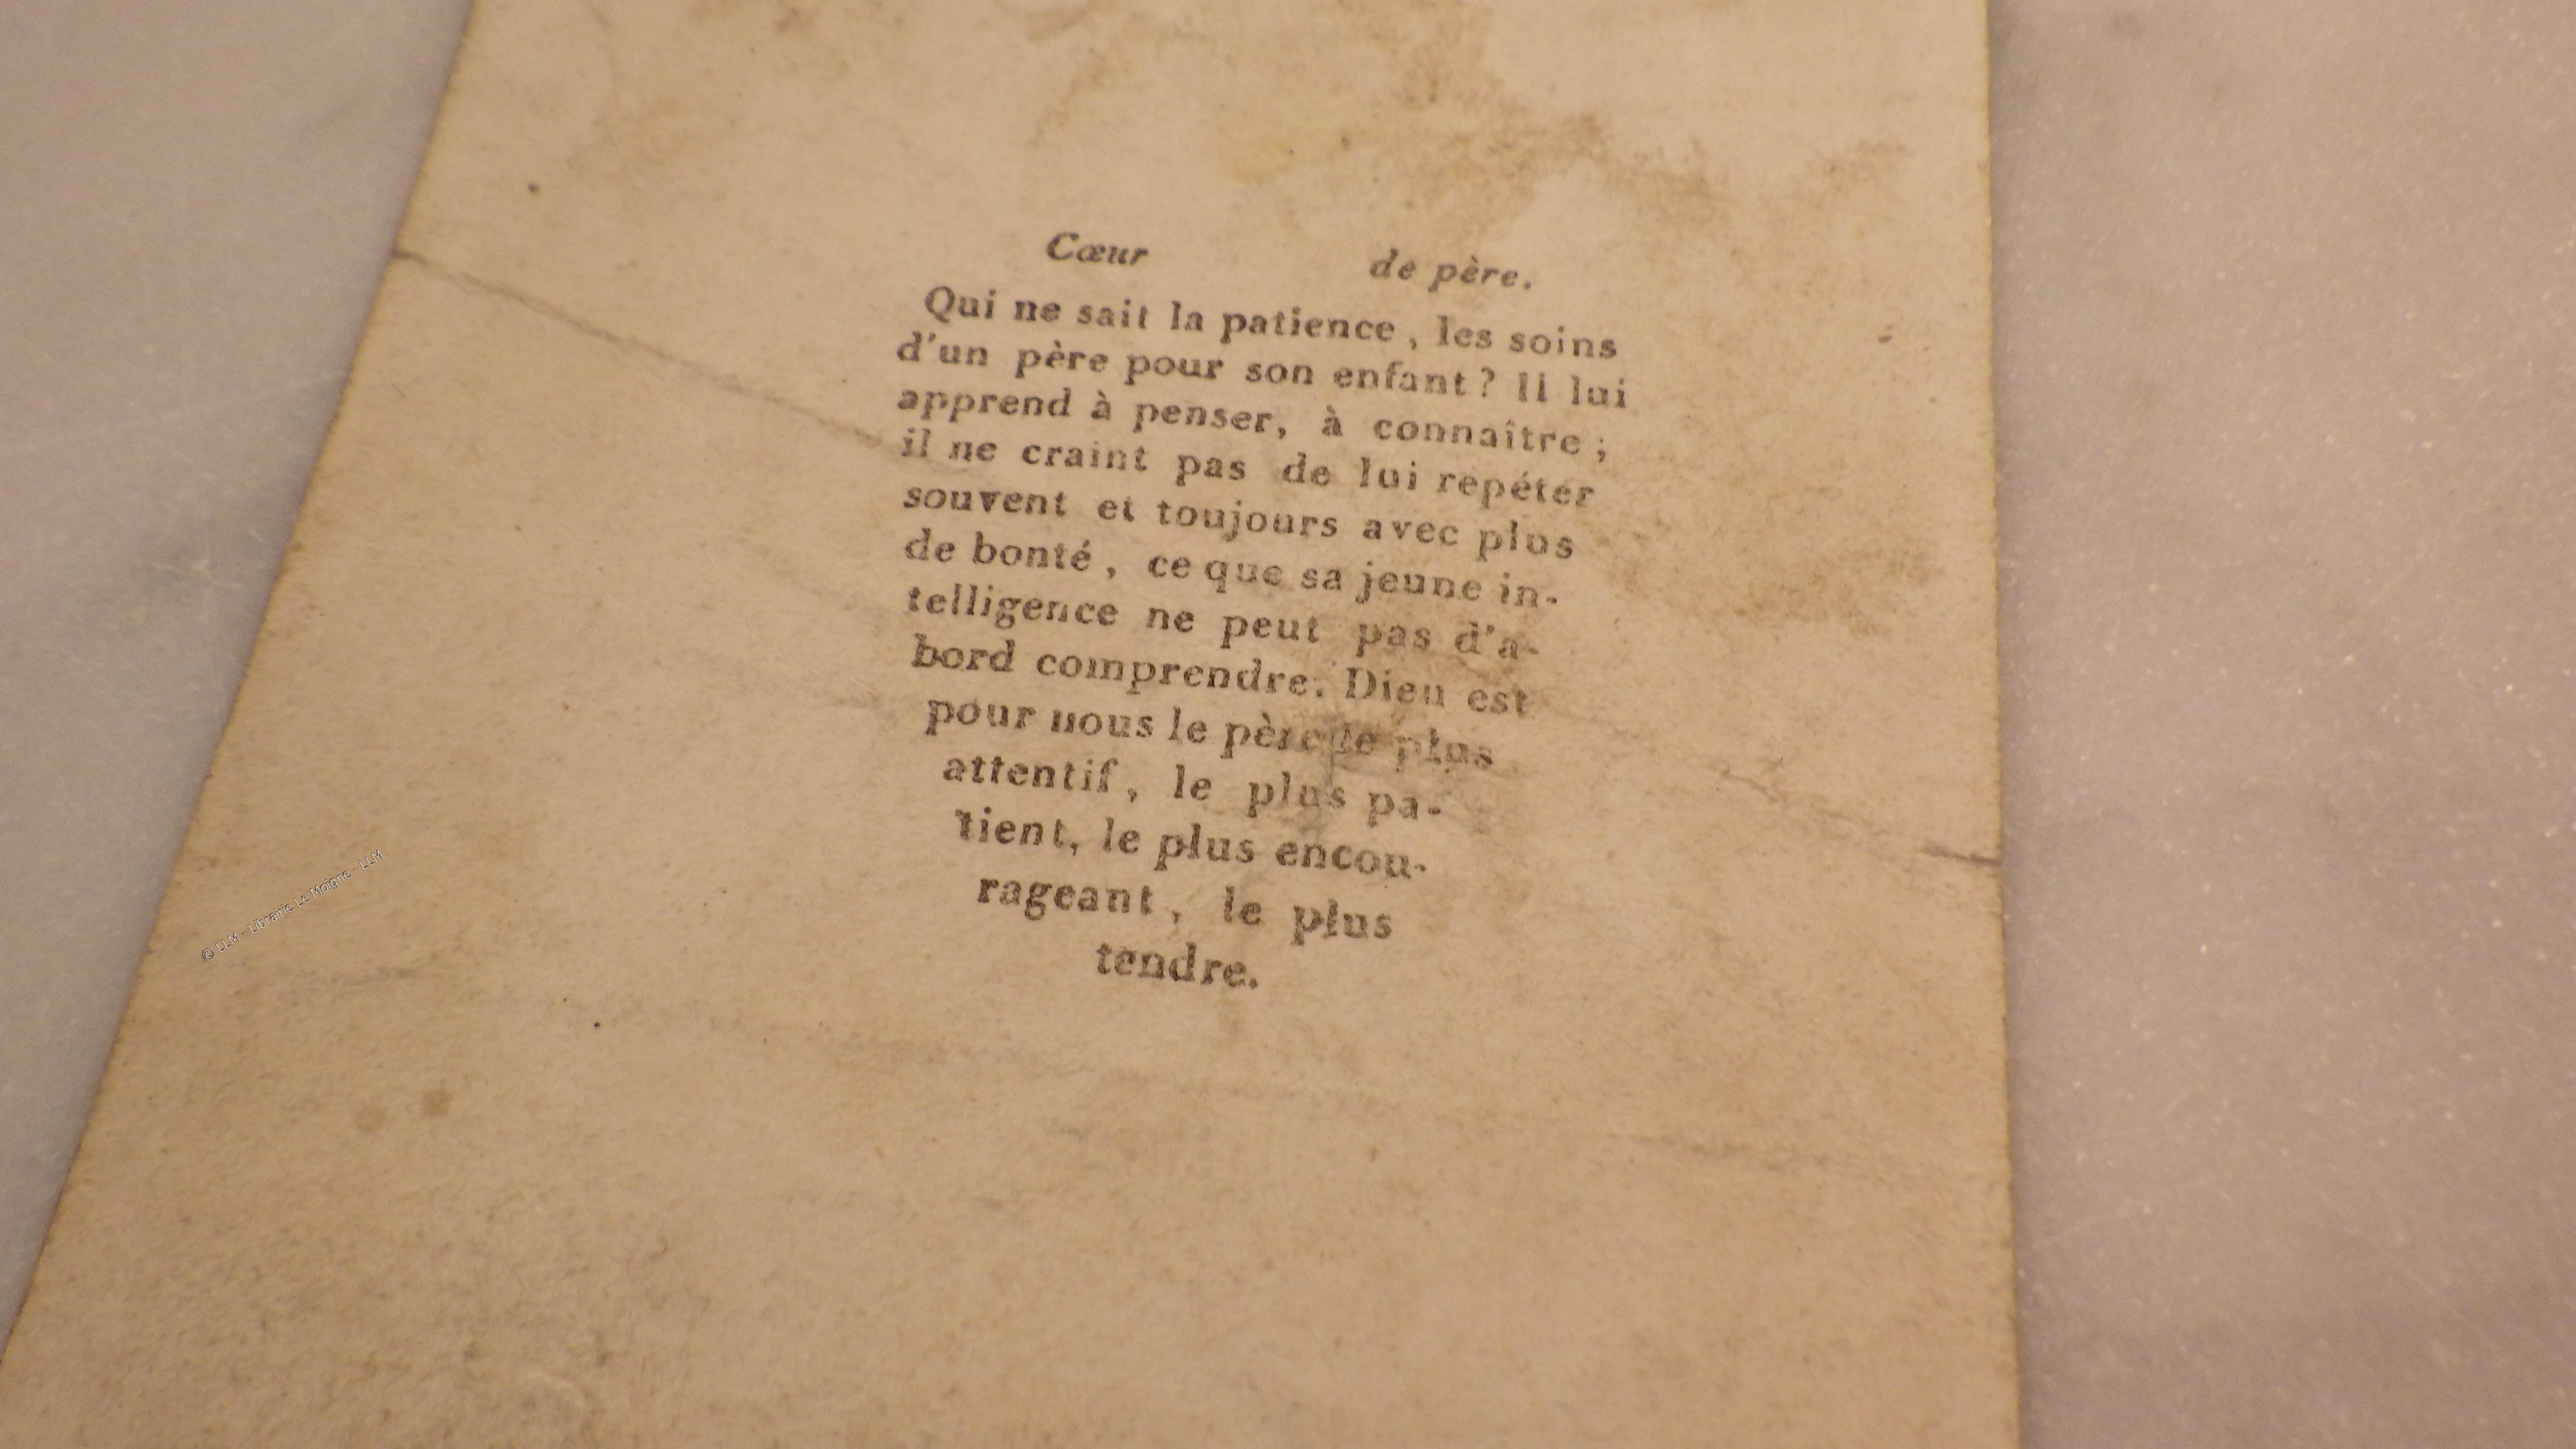 Cœur de père.
Qui ne sait la patience, les soins
d'un père pour son enfant? Il lui
apprend à penser, à connaître;
il ne craint pas de lui repéter
souvent et toujours avec plus
de bonté, ce que sa jeune in-
telligence ne peut pas d'a-
bord comprendre. Dieu est
pour nous le père le plus
attentif, le plus pa-
tient, le plus encou-
rageant, le plus
tendre.
© LLM - Librairie Le Moigne - LLM